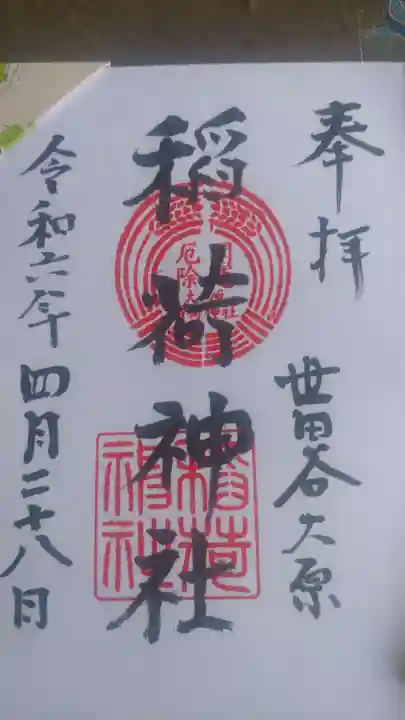 奉拝
世田谷大原
稲荷神社
厄除
令和六年四月二十八日